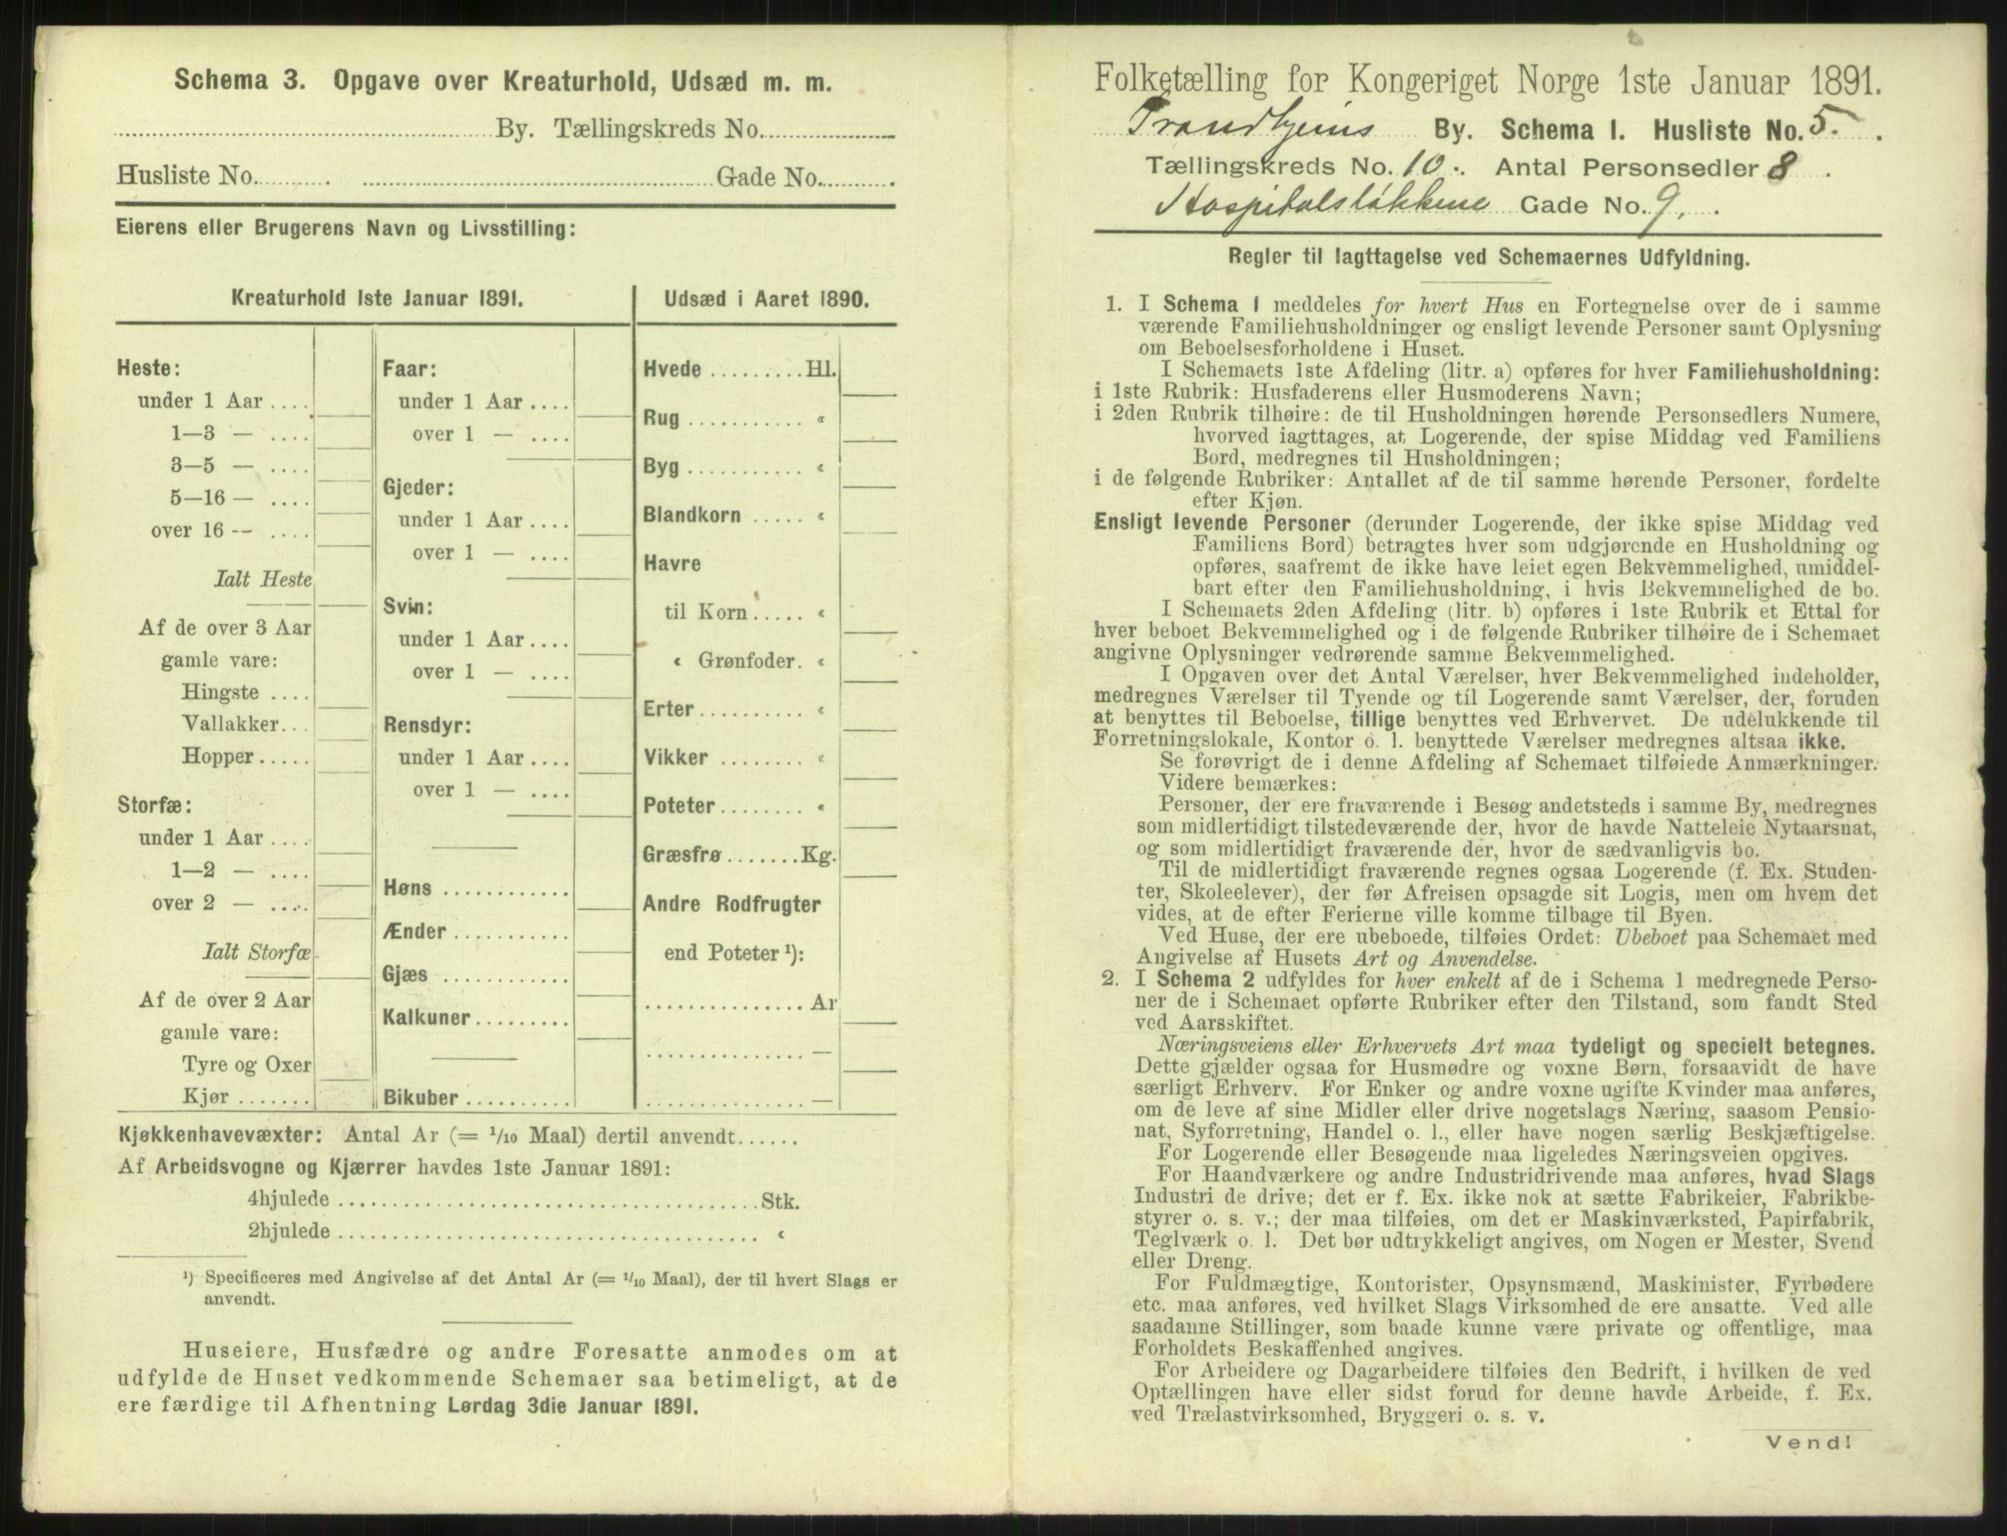 Schema 3. Opgave over Kreaturhold, Udsæd m. m.
By. Tællingskreds No.
Husliste No. Gade No.
Eierens eller Brugerens Navn og Livsstilling:
Kreaturhold 1ste Januar 1891.
Heste:
under 1 Aar ....
1—3 — ....
3—5 — ....
5—16 — ....
over 16 -- ....
Ialt Heste
Af de over 3 Aar
gamle vare:
Hingste ....
Vallakker...
Hopper.....
Storfæ:
under 1 Aar ....
1—2 — ....
over 2 — ....
Ialt Storfæ
Af de over 2 Aar
gamle vare:
Tyre og Oxer
Kjør .......
Faar:
under 1 Aar ....
over 1 — ....
Gjeder:
under 1 Aar ....
over 1 — ....
Svin:
under 1 Aar ....
over 1 — ....
Rensdyr:
under 1 Aar ....
over 1 — ....
Høns ............
Ænder ...........
Gjæs ............
Kalkuner.........
Bikuber ..........
Udsæd i Aaret 1890.
Hvede .........Hl.
Rug ........... «
Byg ........... «
Blandkorn ..... «
Havre
til Korn..... «
« Grønfoder. «
Erter.......... «
Vikker ........ «
Poteter........ «
Græsfrø.......Kg.
Andre Rodfrugter
end Poteter ¹):
............... Ar
............... —
............... —
Kjøkkenhavevæxter: Antal Ar (= 1/10 Maal) dertil anvendt......
Af Arbeidsvogne og Kjærrer havdes 1ste Januar 1891:
4hjulede ...................................... Stk.
2hjulede ...................................... «
¹) Specificeres med Angivelse af det Antal Ar (= 1/10 Maal), der til hvert Slags er
anvendt.
Huseiere, Husfædre og andre Foresatte anmodes om at
udfylde de Huset vedkommende Schemaer saa betimeligt, at de
ere færdige til Afhentning Lørdag 3die Januar 1891.
Folketælling for Kongeriget Norge 1ste Januar 1891.
Trondhjems By. Schema 1. Husliste No. 5.
Tællingskreds No. 10. Antal Personsedler 8.
Hospitalsløkkene Gade No. 9.
Regler til Iagttagelse ved Schemaernes Udfyldning.
1. I Schema 1 meddeles for hvert Hus en Fortegnelse over de i samme
værende Familiehusholdninger og ensligt levende Personer samt Oplysning
om Beboelsesforholdene i Huset.
I Schemaets 1ste Afdeling (litr. a) opføres for hver Familiehusholdning:
i 1ste Rubrik: Husfaderens eller Husmoderens Navn;
i 2den Rubrik tilhøire: de til Husholdningen hørende Personsedlers Numere,
hvorved iagttages, at Logerende, der spise Middag ved Familiens
Bord, medregnes til Husholdningen;
i de følgende Rubriker: Antallet af de til samme hørende Personer, fordelte
efter Kjøn.
Ensligt levende Personer (derunder Logerende, der ikke spise Middag ved
Familiens Bord) betragtes hver som udgjørende en Husholdning og
opføres, saafremt de ikke have leiet egen Bekvemmelighed, umiddel-
bart efter den Familiehusholdning, i hvis Bekvemmelighed de bo.
I Schemaets 2den Afdeling (litr. b) opføres i 1ste Rubrik et Ettal for
hver beboet Bekvemmelighed og i de følgende Rubriker tilhøire de i Schemaet
angivne Oplysninger vedrørende samme Bekvemmelighed.
I Opgaven over det Antal Værelser, hver Bekvemmelighed indeholder,
medregnes Værelser til Tyende og til Logerende samt Værelser, der, foruden
at benyttes til Beboelse, tillige benyttes ved Erhvervet. De udelukkende til
Forretningslokale, Kontor o. l. benyttede Værelser medregnes altsaa ikke.
Se forøvrigt de i denne Afdeling af Schemaet tilføiede Anmærkninger.
Videre bemærkes:
Personer, der ere fraværende i Besøg andetsteds i samme By, medregnes
som midlertidigt tilstedeværende der, hvor de havde Natteleie Nytaarsnat,
og som midlertidigt fraværende der, hvor de sædvanligvis bo.
Til de midlertidigt fraværende regnes ogsaa Logerende (f. Ex. Studen-
ter, Skoleelever), der før Afreisen opsagde sit Logis, men om hvem det
vides, at de efter Ferierne ville komme tilbage til Byen.
Ved Huse, der ere ubeboede, tilføies Ordet: Ubeboet paa Schemaet med
Angivelse af Husets Art og Anvendelse.
2. I Schema 2 udfyldes for hver enkelt af de i Schema 1 medregnede Perso-
ner de i Schemaet opførte Rubriker efter den Tilstand, som fandt Sted
ved Aarsskiftet.
Næringsveiens eller Erhvervets Art maa tydeligt og specielt betegnes.
Dette gjælder ogsaa for Husmødre og voxne Børn, forsaavidt de have
særligt Erhverv. For Enker og andre voxne ugifte Kvinder maa anføres,
om de leve af sine Midler eller drive nogetslags Næring, saasom Pensio-
nat, Syforretning, Handel o. l., eller have nogen særlig Beskjæftigelse.
For Logerende eller Besøgende maa ligeledes Næringsveien opgives.
For Haandværkere og andre Industridrivende maa anføres, hvad Slags
Industri de drive; det er f. Ex. ikke nok at sætte Fabrikeier, Fabrikbe-
styrer o. s. v.; der maa tilføies, om det er Maskinværksted, Papirfabrik,
Teglværk o. l. Det bør udtrykkeligt angives, om Nogen er Mester, Svend
eller Dreng.
For Fuldmægtige, Kontorister, Opsynsmænd, Maskinister, Fyrbødere
etc. maa anføres, ved hvilket Slags Virksomhed de ere ansatte. Ved alle
saadanne Stillinger, som baade kunne være private og offentlige, maa
Forholdets Beskaffenhed angives.
For Arbeidere og Dagarbeidere tilføies den Bedrift, i hvilken de ved
Optællingen have eller sidst forud for denne havde Arbeide, f. Ex.
ved Trælastvirksomhed, Bryggeri o. s. v.
Vend!